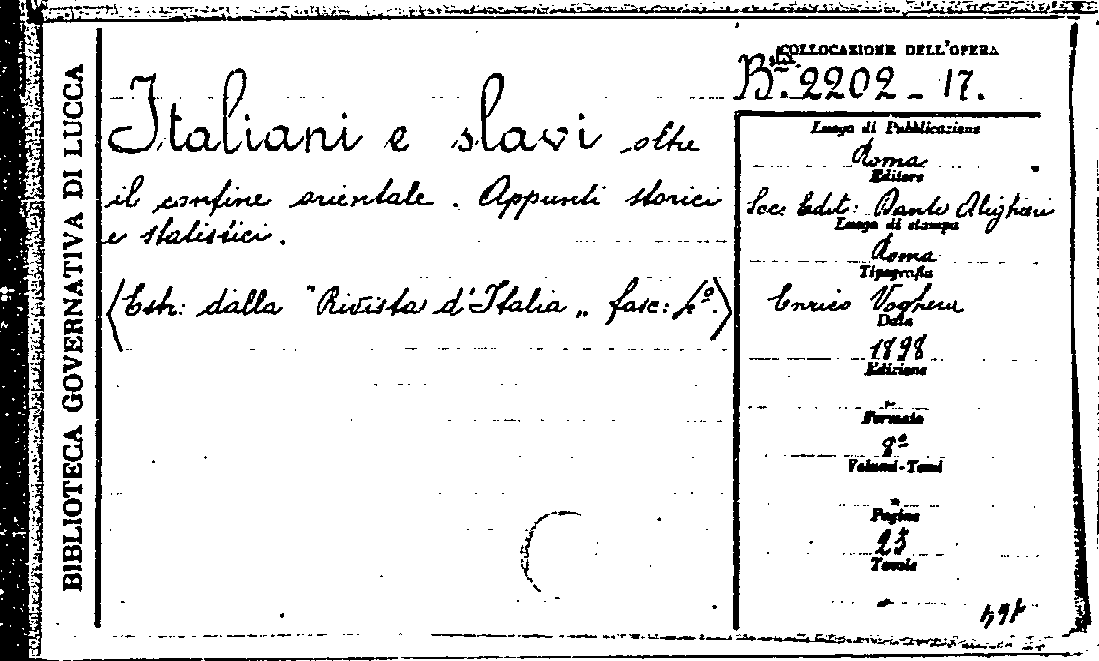 BIBLIOTECA GOVERNATIVA DI LUCCA
Italiani e slavi oltre
il confine orientale. Appunti storici
e statistici.
(Estr: dalla "Rivista d'Italia„ fasc: 4º.)
COLLOCAZIONE DELL'OPERA
Bta. 2202 - 17.
Luogo di Pubblicazione
Roma
Editore
Soc: Edit: Dante Alighieri
Luogo di stampa
Roma
Tipografia
Enrico Voghera
Data
1898
Edizione
Formato
8º
Volumi-Tomi
Pagine
23
Tavole